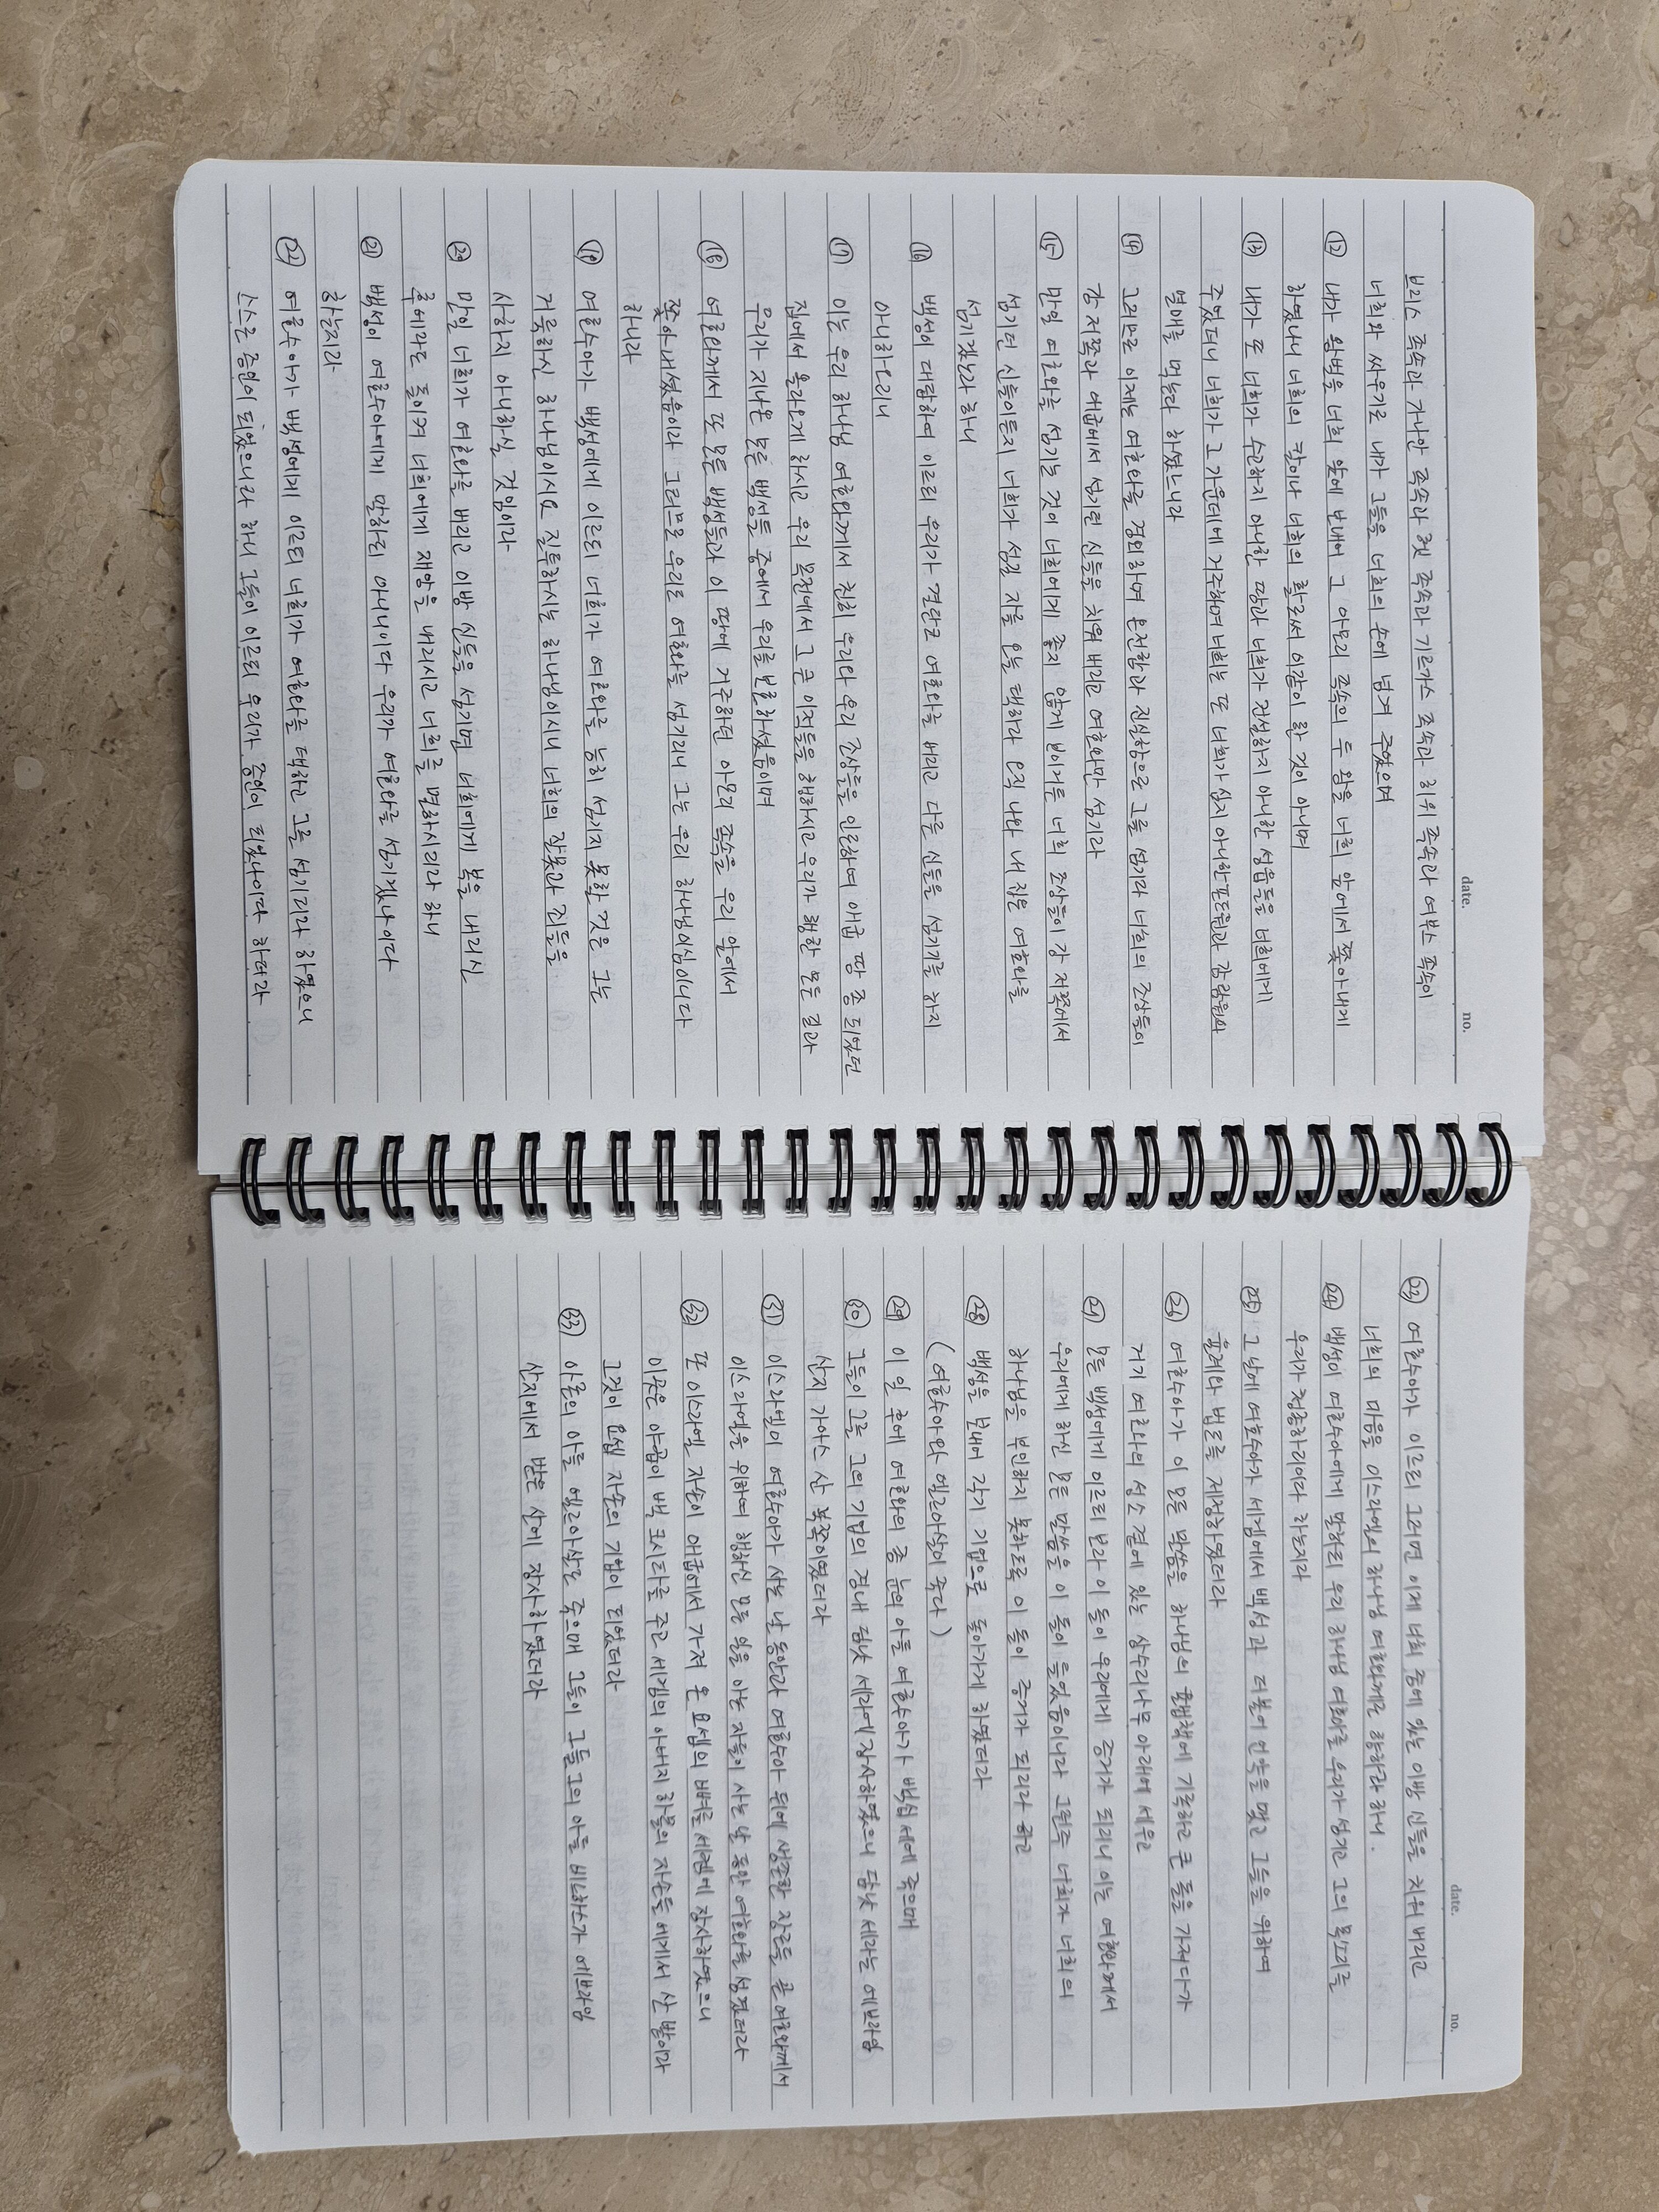 date. no.
브리스 족속과 가나안 족속과 헷 족속과 기르가스 족속과 히위 족속과 여부스 족속이
너희와 싸우기로 내가 그들을 너희의 손에 넘겨 주었으며
⑫ 내가 왕벌을 너희 앞에 보내어 그 아모리 족속의 두 왕을 너희 앞에서 쫓아내게
하였나니 너희의 칼이나 너희의 활로써 이같이 한 것이 아니며
⑬ 내가 또 너희가 수고하지 아니한 땅과 너희가 건설하지 아니한 성읍들을 너희에게
주었더니 너희가 그 가운데에 거주하며 너희는 또 너희가 심지 아니한 포도원과 감람원의
열매를 먹는다 하셨느니라
⑭ 그러므로 이제는 여호와를 경외하며 온전함과 진실함으로 그를 섬기라 너희의 조상들이
강 저쪽과 애굽에서 섬기던 신들을 치워 버리고 여호와만 섬기라
⑮ 만일 여호와를 섬기는 것이 너희에게 좋지 않게 보이거든 너희 조상들이 강 저쪽에서
섬기던 신들이든지 너희가 섬길 자를 오늘 택하라 오직 나와 내 집은 여호와를
섬기겠노라 하니
⑯ 백성이 대답하여 이르되 우리가 결단코 여호와를 버리고 다른 신들을 섬기기를 하지
아니하오리니
⑰ 이는 우리 하나님 여호와께서 친히 우리와 우리 조상들을 인도하여 애굽 땅 종 되었던
집에서 올라오게 하시고 우리 목전에서 그 큰 이적들을 행하시고 우리가 행한 모든 길과
우리가 지나온 모든 백성들 중에서 우리를 보호하셨음이며
⑱ 여호와께서 또 모든 백성들과 이 땅에 거주하던 아모리 족속을 우리 앞에서
쫓아내셨음이라 그러므로 우리도 여호와를 섬기리니 그는 우리 하나님이심이니이다
하니라
⑲ 여호수아가 백성에게 이르되 너희가 여호와를 능히 섬기지 못할 것은 그는
거룩하신 하나님이시요 질투하시는 하나님이시니 너희의 잘못과 죄들을
사하지 아니하실 것임이라
⑳ 만일 너희가 여호와를 버리고 이방 신들을 섬기면 너희에게 복을 내리신
후에라도 돌이켜 너희에게 재앙을 내리시고 너희를 멸하시리라 하니
㉑ 백성이 여호수아에게 말하되 아니니이다 우리가 여호와를 섬기겠나이다
하는지라
㉒ 여호수아가 백성에게 이르되 너희가 여호와를 택하고 그를 섬기리라 하였으니
스스로 증인이 되었느니라 하니 그들이 이르되 우리가 증인이 되었나이다 하더라
date. no.
㉓ 여호수아가 이르되 그러면 이제 너희 중에 있는 이방 신들을 치워 버리고
너희의 마음을 이스라엘의 하나님 여호와께로 향하라 하니.
㉔ 백성이 여호수아에게 말하되 우리 하나님 여호와를 우리가 섬기고 그의 목소리를
우리가 청종하리이다 하는지라
㉕ 그 날에 여호수아가 세겜에서 백성과 더불어 언약을 맺고 그들을 위하여
율례와 법도를 제정하였더라
㉖ 여호수아가 이 모든 말씀을 하나님의 율법책에 기록하고 큰 돌을 가져다가
거기 여호와의 성소 곁에 있는 상수리나무 아래에 세우고
㉗ 모든 백성에게 이르되 보라 이 돌이 우리에게 증거가 되리니 이는 여호와께서
우리에게 하신 모든 말씀을 이 돌이 들었음이니라 그런즉 너희가 너희의
하나님을 부인하지 못하도록 이 돌이 증거가 되리라 하고
㉘ 백성을 보내어 각기 기업으로 돌아가게 하였더라
(여호수아와 엘르아살이 죽다)
㉙ 이 일 후에 여호와의 종 눈의 아들 여호수아가 백십 세에 죽으매
㉚ 그들이 그를 그의 기업의 경내 딤낫 세라에 장사하였으니 딤낫 세라는 에브라임
산지 가아스 산 북쪽이었더라
㉛ 이스라엘이 여호수아가 사는 날 동안과 여호수아 뒤에 생존한 장로들 곧 여호와께서
이스라엘을 위하여 행하신 모든 일을 아는 자들이 사는 날 동안 여호와를 섬겼더라
㉜ 또 이스라엘 자손이 애굽에서 가져 온 요셉의 뼈를 세겜에 장사하였으니
이곳은 야곱이 백 크시타를 주고 세겜의 아버지 하몰의 자손들에게서 산 밭이라
그것이 요셉 자손의 기업이 되었더라
㉝ 아론의 아들 엘르아살도 죽으매 그들이 그를 그의 아들 비느하스가 에브라임
산지에서 받은 산에 장사하였더라